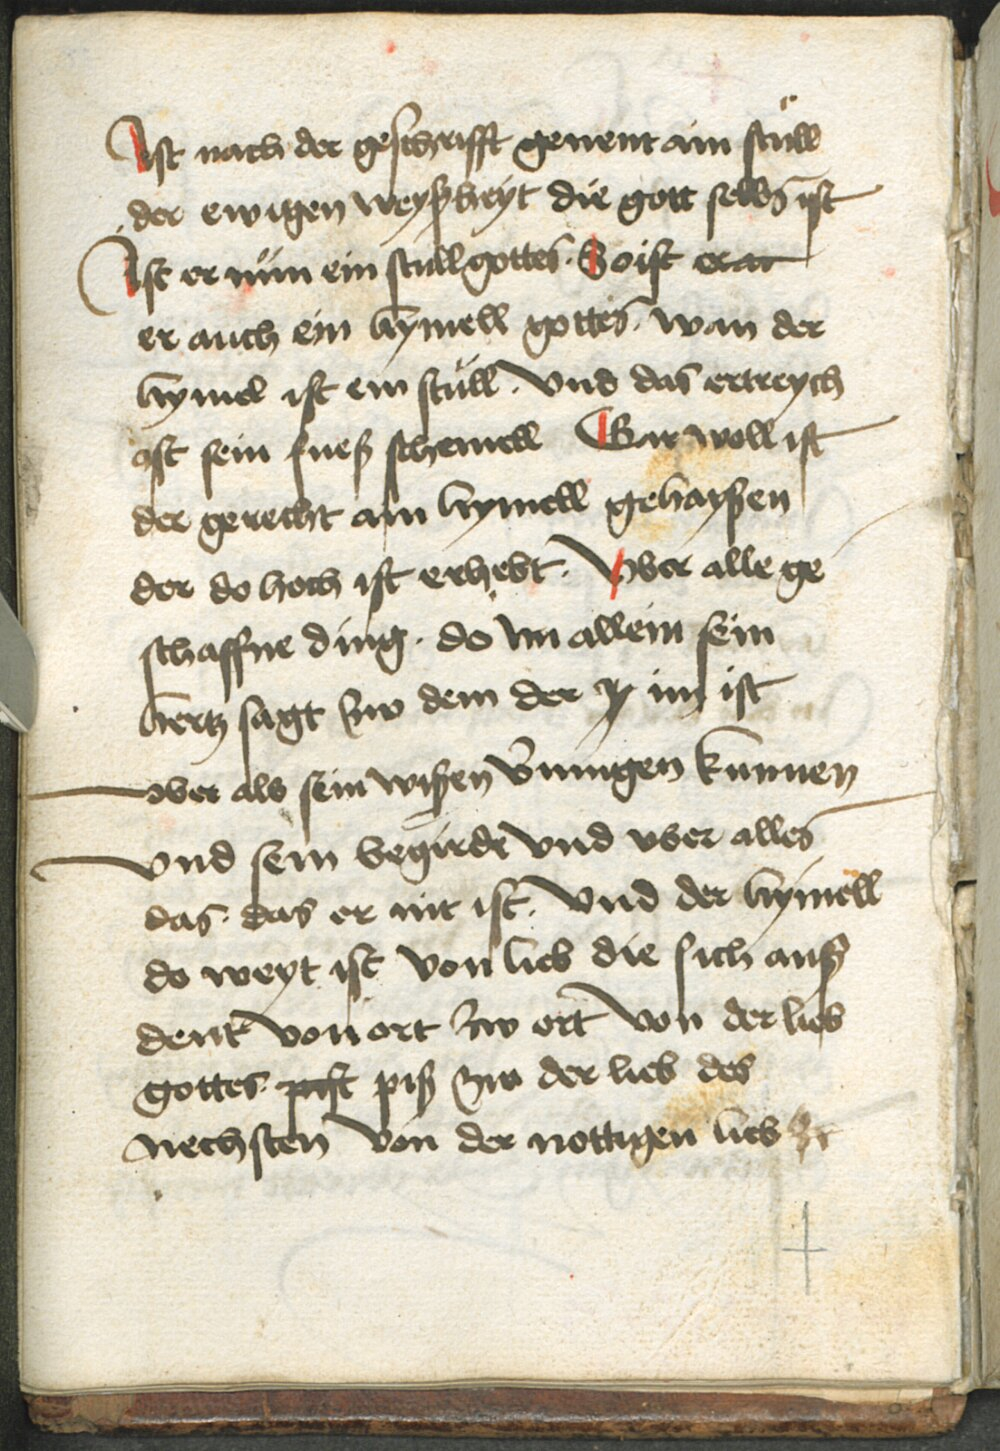 Ist nach der geschrifft genent ain stüll
der ewigen weyßheyt die gott selbs ist
Ist er nün ein stüll gottes. So ist
er auch ein hymell gottes. wan der
hymel ist ein stüll. Vnd das ertreych
ist sein fueß schemell Gar woll ist
der gerecht ain hymell gehayßen
der do hoch ist erhebt. Vber alle ge
schaffne ding. do im allein sein
hertz sagt zw dem der in im ist
vber als sein wißen vermugen kunnen
vnd sein begirde vnd vber alles
das. das er nit ist. Vnd der hymell
do weyt ist von lieb die sich auß
dent von ort zw ort von der lieb
gottes. piß zw der lieb des
nechsten von der nottigen lieb